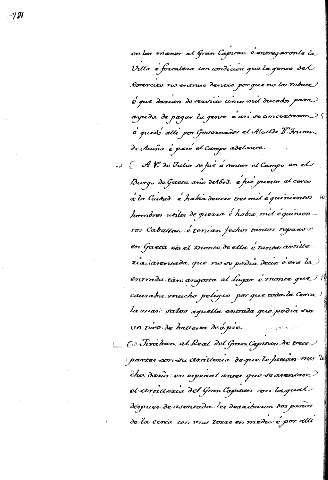 en las manos al Gran Capitan é entregaronle la
Villa é fortaleza con condicion que la gente del
no entrase dentro por que no los robase
é que darian de servicio cinco mil ducados para
ayuda de pagar la gente é asi se concertaron
é quedó alli por Governador el Alcalde Dn.
de é pasó el Campo adelante.
A Vº. de Julio se fué á meter el Campo en el
Burgo de Gaeta año de 1503. é fué puesto el cerco
á la Ciudad é habia dentro tres mil é quinientos
hombres utiles de guerra é habia mil é quinien-
tos Caballos é tenian fechos tantos reparos
en Gaeta en el Monte de ella é tanta artille
ria asentada, que no se podia decir é era la
entrada tan angosta al lugar é monte que
causaba mucho peligro por que toda la cerca
la mar salvo aquella entrada que podia ser
un tiro de ballesta de ó pie.
Tiraban al Real del Gran Capitan de tres
partes con su artilleria de que le facian mu
cho daño en especial antes que se asentase
el artilleria del Gran Capitan con la qual
despues de asentada les derribaron dos paños
de la cerca con una torre en medio é por alli